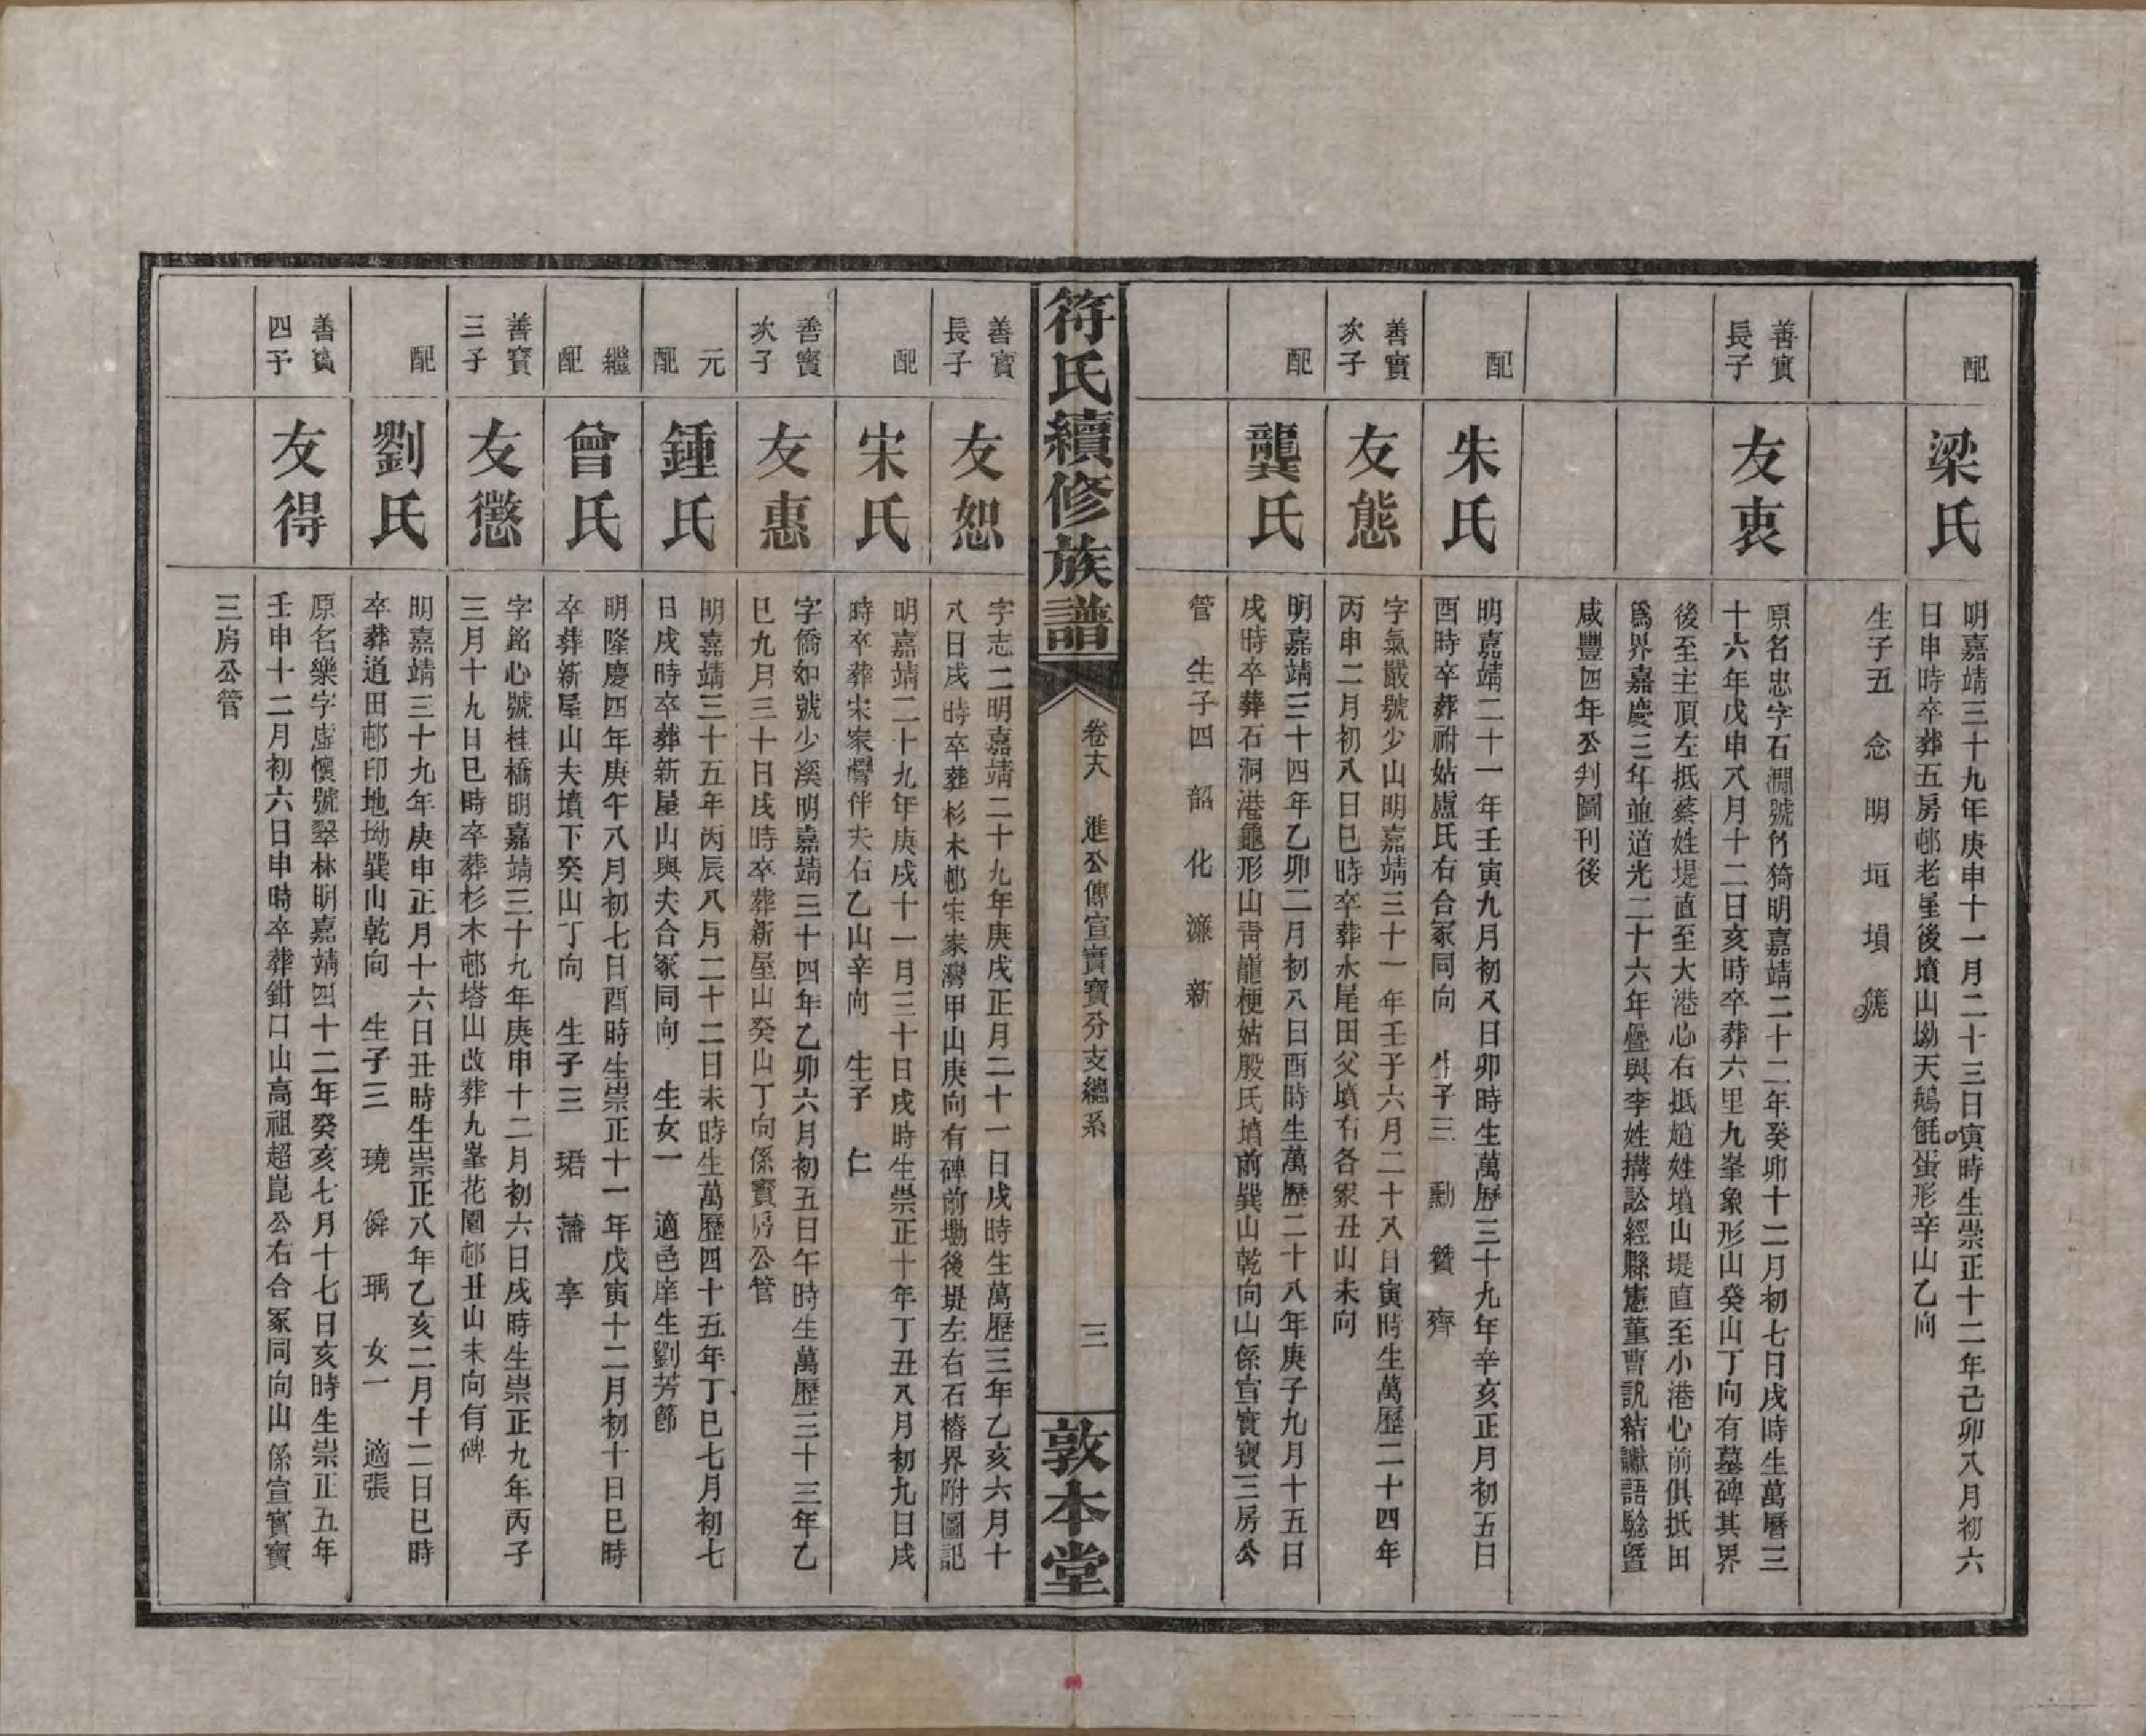 配
梁氏
明嘉靖三十九年庚申十一月二十三日寅時生崇正十二年己卯八月初六
日申時卒葬五房邨老屋後墳山坳天鵝毻蛋形辛山乙向
生子五　念　明　垣　塤　篪
善實
長子
友衷
原名忠字石澗號竹猗明嘉靖二十二年癸卯十二月初七日戌時生萬曆三
十六年戊申八月十二日亥時卒葬六里九峯象形山癸山丁向有墓碑其界
後至主頂左抵蔡姓堤直至大港心右抵趙姓墳山堤直至小港心前俱抵田
爲界嘉慶三年並道光二十六年疊與李姓搆訟經縣憲董曹訊結讞語騐曁
咸豐四年公判圖刊後
配
朱氏
明嘉靖二十一年壬寅九月初八日卯時生萬歷三十九年辛亥正月初五日
酉時卒葬祔姑盧氏右合冢同向　生子三　勳　贊　齊
善實
次子
友態
字氣嚴號少山明嘉靖三十一年壬子六月二十八日寅時生萬歷二十四年
丙申二月初八日巳時卒葬水尾田父墳右各冢丑山未向
配
龔氏
明嘉靖三十四年乙卯二月初八日酉時生萬歷二十八年庚子九月十五日
戌時卒葬石洞港龜形山靑龍梗姑殷氏墳前巽山乾向山係宣實寶三房公
管　生子四　韶　化　濂　新
符氏續修族譜
卷十八　進公傳宣實寶分支總系
三
敦本堂
善實
長子
友恕
字志二明嘉靖二十九年庚戌正月二十一日戌時生萬歷三年乙亥六月十
八日戌時卒葬杉木邨宋家灣甲山庚向有碑前塝後堤左右石樁界附圖記
配
宋氏
明嘉靖二十九年庚戌十一月三十日戌時生崇正十年丁丑八月初九日戌
時卒葬宋家灣伴夫右乙山辛向　生子　仁
善寶
次子
友惠
字僑如號少溪明嘉靖三十四年乙卯六月初五日午時生萬歷三十三年乙
巳九月三十日戌時卒葬新屋山癸山丁向係寶房公管
元
配
鍾氏
明嘉靖三十五年丙辰八月二十二日未時生萬歷四十五年丁巳七月初七
日戌時卒葬新屋山與夫合冢同向　生女一　適邑庠生劉芳節
繼
配
曾氏
明隆慶四年庚午八月初七日酉時生崇正十一年戊寅十二月初十日巳時
卒葬新屋山夫墳下癸山丁向　生子三　珺　藩　享
善寶
三子
友懲
字銘心號桂橋明嘉靖三十九年庚申十二月初六日戌時生崇正九年丙子
三月十九日巳時卒葬杉木邨塔山改葬九峯花園邨丑山未向有碑
配
劉氏
明嘉靖三十九年庚申正月十六日丑時生崇正八年乙亥二月十二日巳時
卒葬道田邨印地坳巽山乾向　生子三　璄　僢　瑀　女一　適張
善寶
四子
友得
原名樂字虛懷號翠林明嘉靖四十二年癸亥七月十七日亥時生崇正五年
壬申十二月初六日申時卒葬鉗口山高祖超崑公右合冢同向山係宣實寶
三房公管